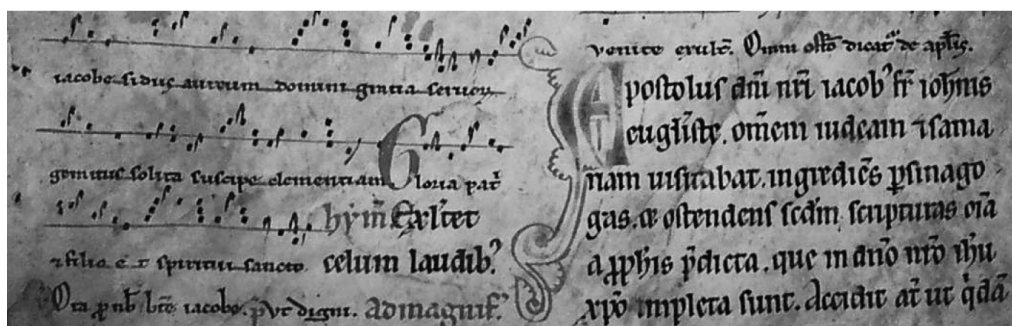 iacobe sidus aureum domini gratia seruor
gemitus solita suscipe clementiam Gloria pat̄r
hȳm Exl̄tet
⁊ filio ⁊ spiritui sancto celum laudib⁹
Ora ꝓ nob̄ b̄te iacobe. p̄ut digni. ad magnif̄.
venite exult̄. dicat͛ de ap̄lis.
Apostolus dn̄i nr̄i iacob⁹ fr̄ ioh̄nis
euḡliste. om̄em iudeam ⁊ sama
riam uisitabat. ingrediēs ꝑ sinago
gas. ostendens scdm̄ scripturas oīa
a ꝓph̄is p̄dicta. que in dn̄o nr̄o ih̄u
xp̄o impleta sunt. Accidit at̄ ut q̄dā